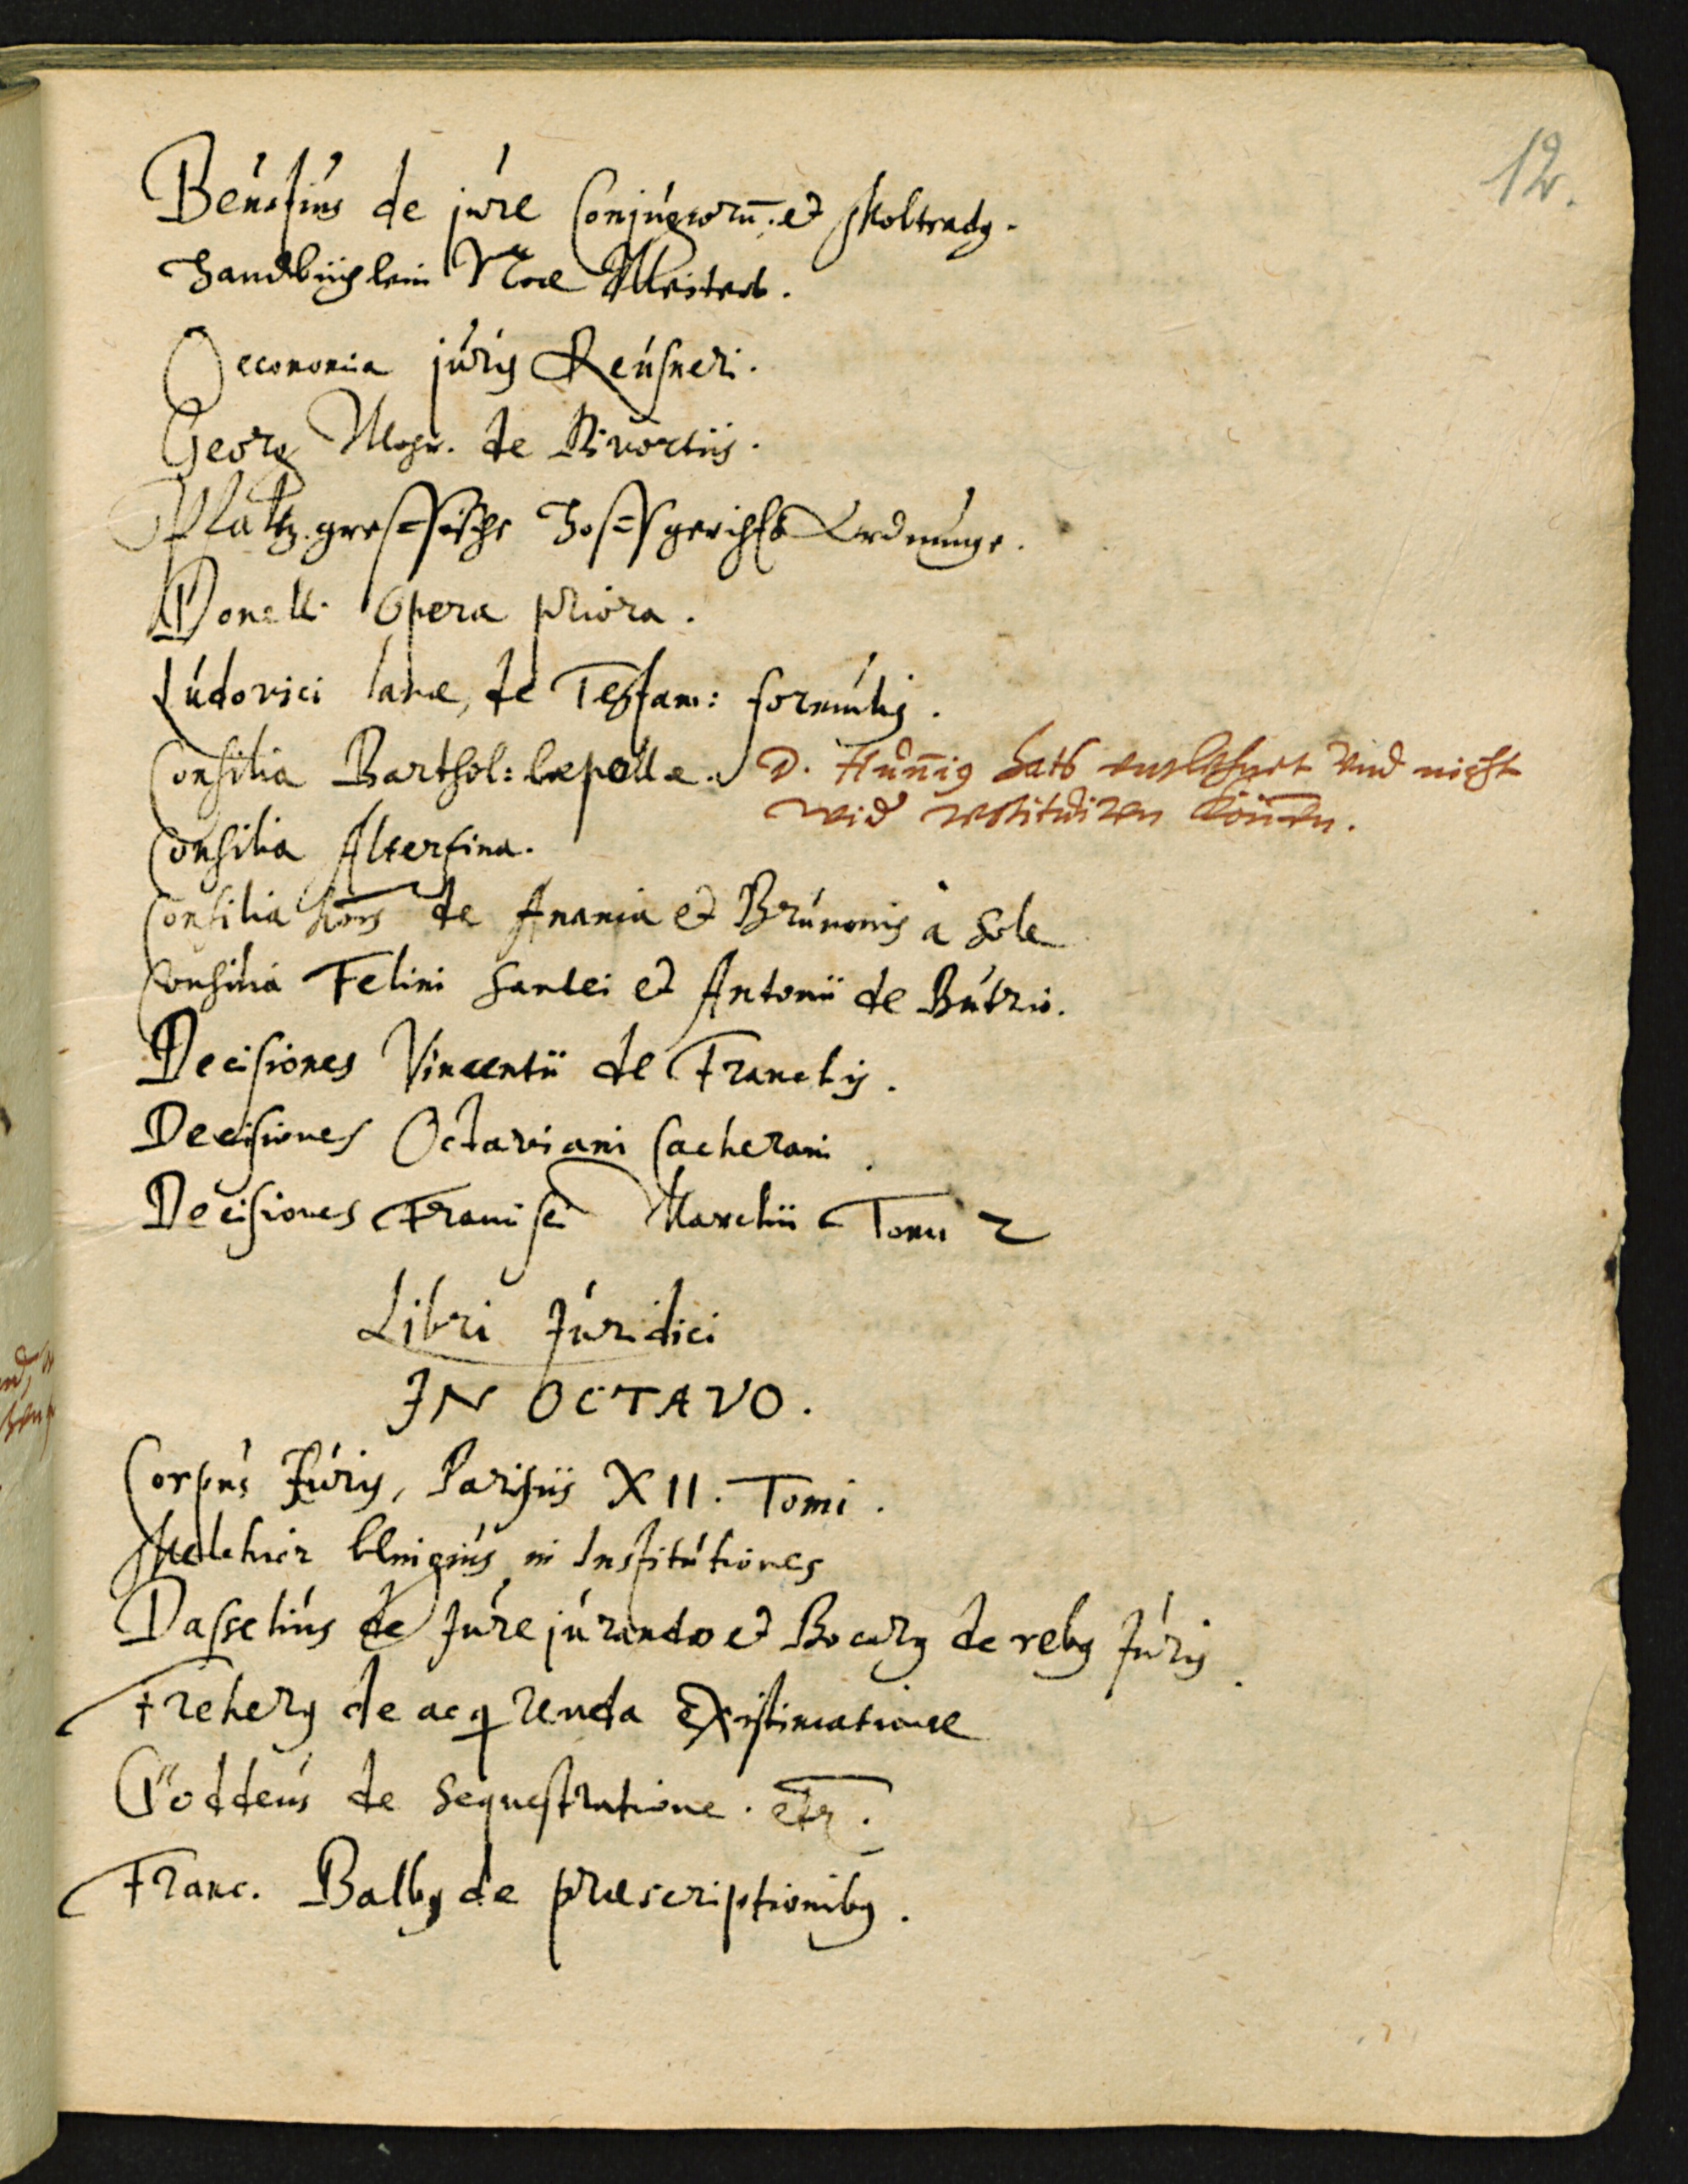 12.
Beustius de jure Conjugiorū. et Moltradg.
Handbüchlein Noæ Meisters.
Oeconomia juris Reusneri.
Georg Mohr. de Divortiis.
Pfaltz. grefische Hoffgerichts Ordnunge.
Donelli Opera priora.
Ludovici Caræ, de Testam: formulis.
Consilia Barthol: Cæpollæ. D. Hunnig hats entlehnet vnd nicht
wid restituiren können.
Consilia Altersina.
Consilia Ioīs de Anania et Brunonis à Sole
Consilia Felini Sandei et Antonii de Butrio.
Decisiones Vincentii de Franchis.
Decisiones Octaviani Cacherani.
Decisiones Francisci Marchii Tomi 2
Libri Juridici
IN OCTAVO.
Corpus Juris, Parisiis XII. Tomi.
Melchior Clingius in Institutiones
Dasselius de Jurejurando et Bocerg de rebg Juris.
Freherg de acqrenda Existimatione
Göddeus de Sequestratione. etc.
Franc. Balbg de præscriptionibg.